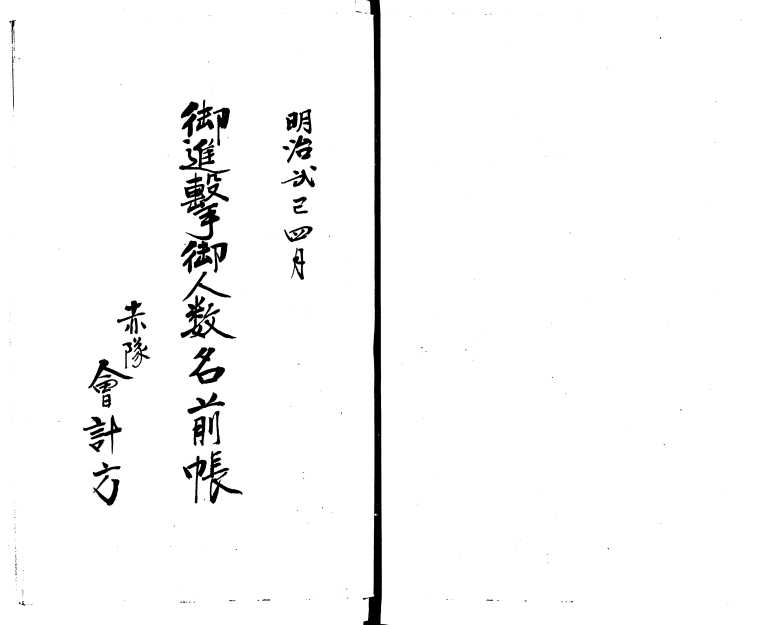 明治弐巳四月
御進擊御人数名前帳
赤隊
會計方